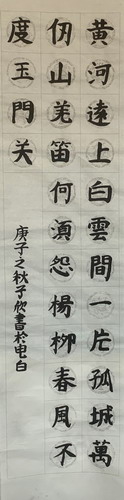 黃河遠上白雲間一片孤城萬
仞山羌笛何湏怨楊柳春風不
度玉門关
庚子之秋子欣書於电白